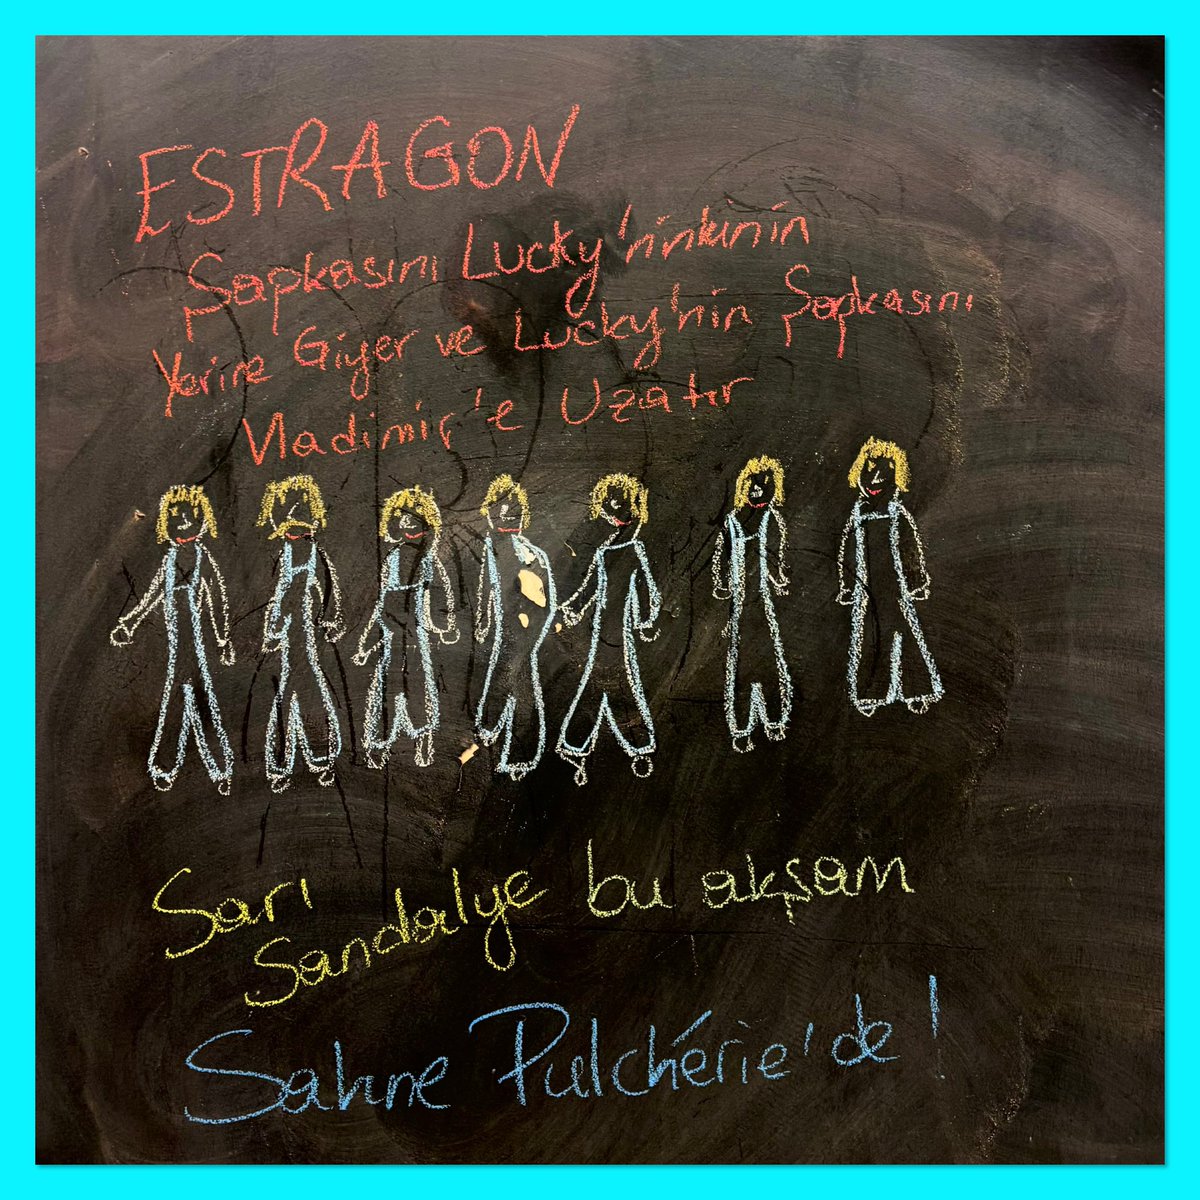 ESTRAGON
Şapkasını Lucky'ninkinin
Yerine Giyer ve Lucky'nin Şapkasını
Vladimir'e Uzatır
Sarı
Sandalye bu akşam
Sahne Pulchérie'de!